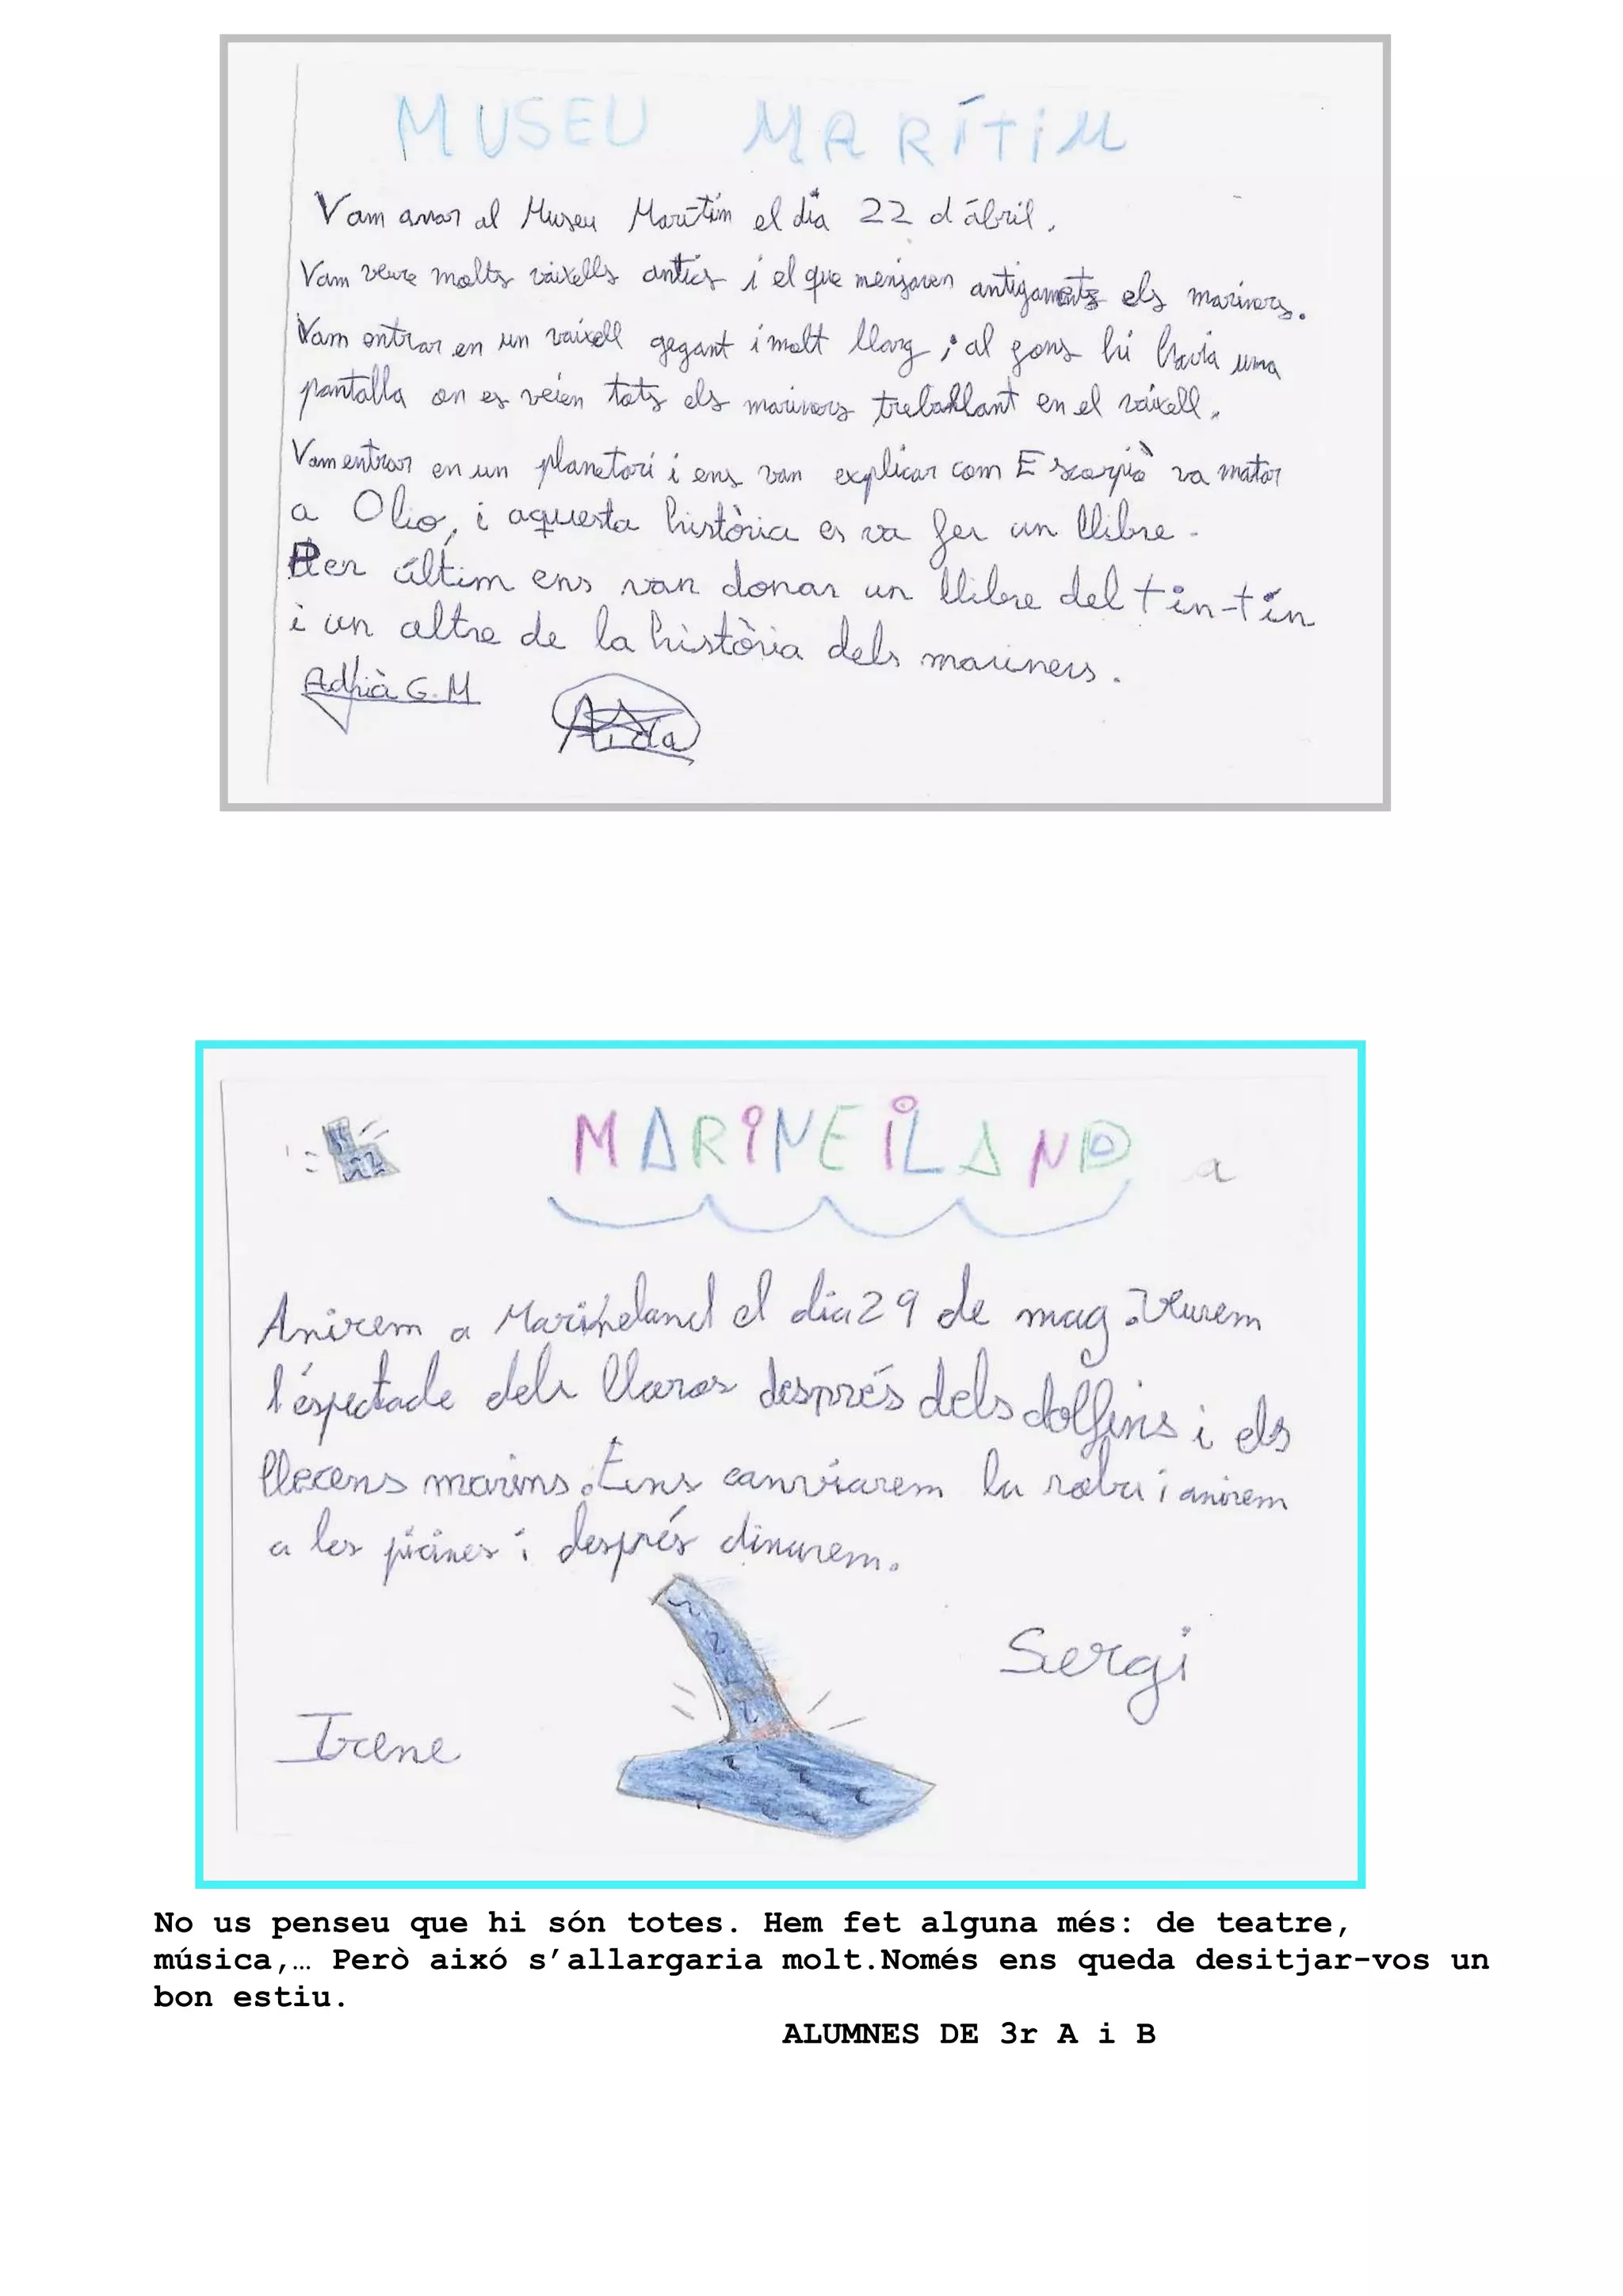 MUSEU MARÍTIM
Vam anar al Museu Marítim el dia 22 d'abril.
Vam veure molts vaixells antics i el que menjaven antigaments els mariners.
Vam entrar en un vaixell gegant i molt llarg i al gons hi havia una
pantalla on es veien tots els mariners treballant en el vaixell.
Vam entrar en un planetori i ens van explicar com Escorpiò va matar
a Olio, i aquesta història es va fer un llibre.
Per últim ens van donar un llibre del tin-tin
i un altre de la història dels mariners.
Adrià G.M
Aida
MARINEILAND a
Anirem a Marineland el dia 29 de mag. Veurem
l'espectacle dels lloros després dels dolfins i els
lleoens marins. Ens canviarem la roba i anirem
a les picines i després dinarem.
Sergi
Irene
No us penseu que hi són totes. Hem fet alguna més: de teatre,
música,… Però aixó s’allargaria molt.Només ens queda desitjar-vos un
bon estiu.
ALUMNES DE 3r A i B